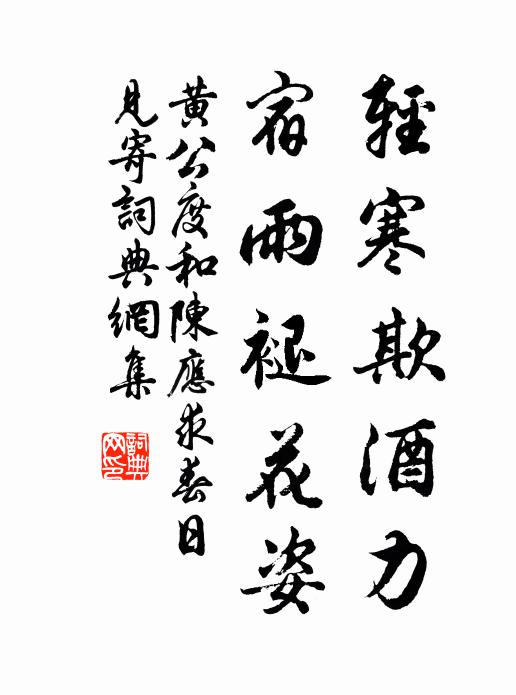 輕寒欺酒力
宿雨褪花姿
黃公度和陳應求春日
見寄詞典網集
詞典網印